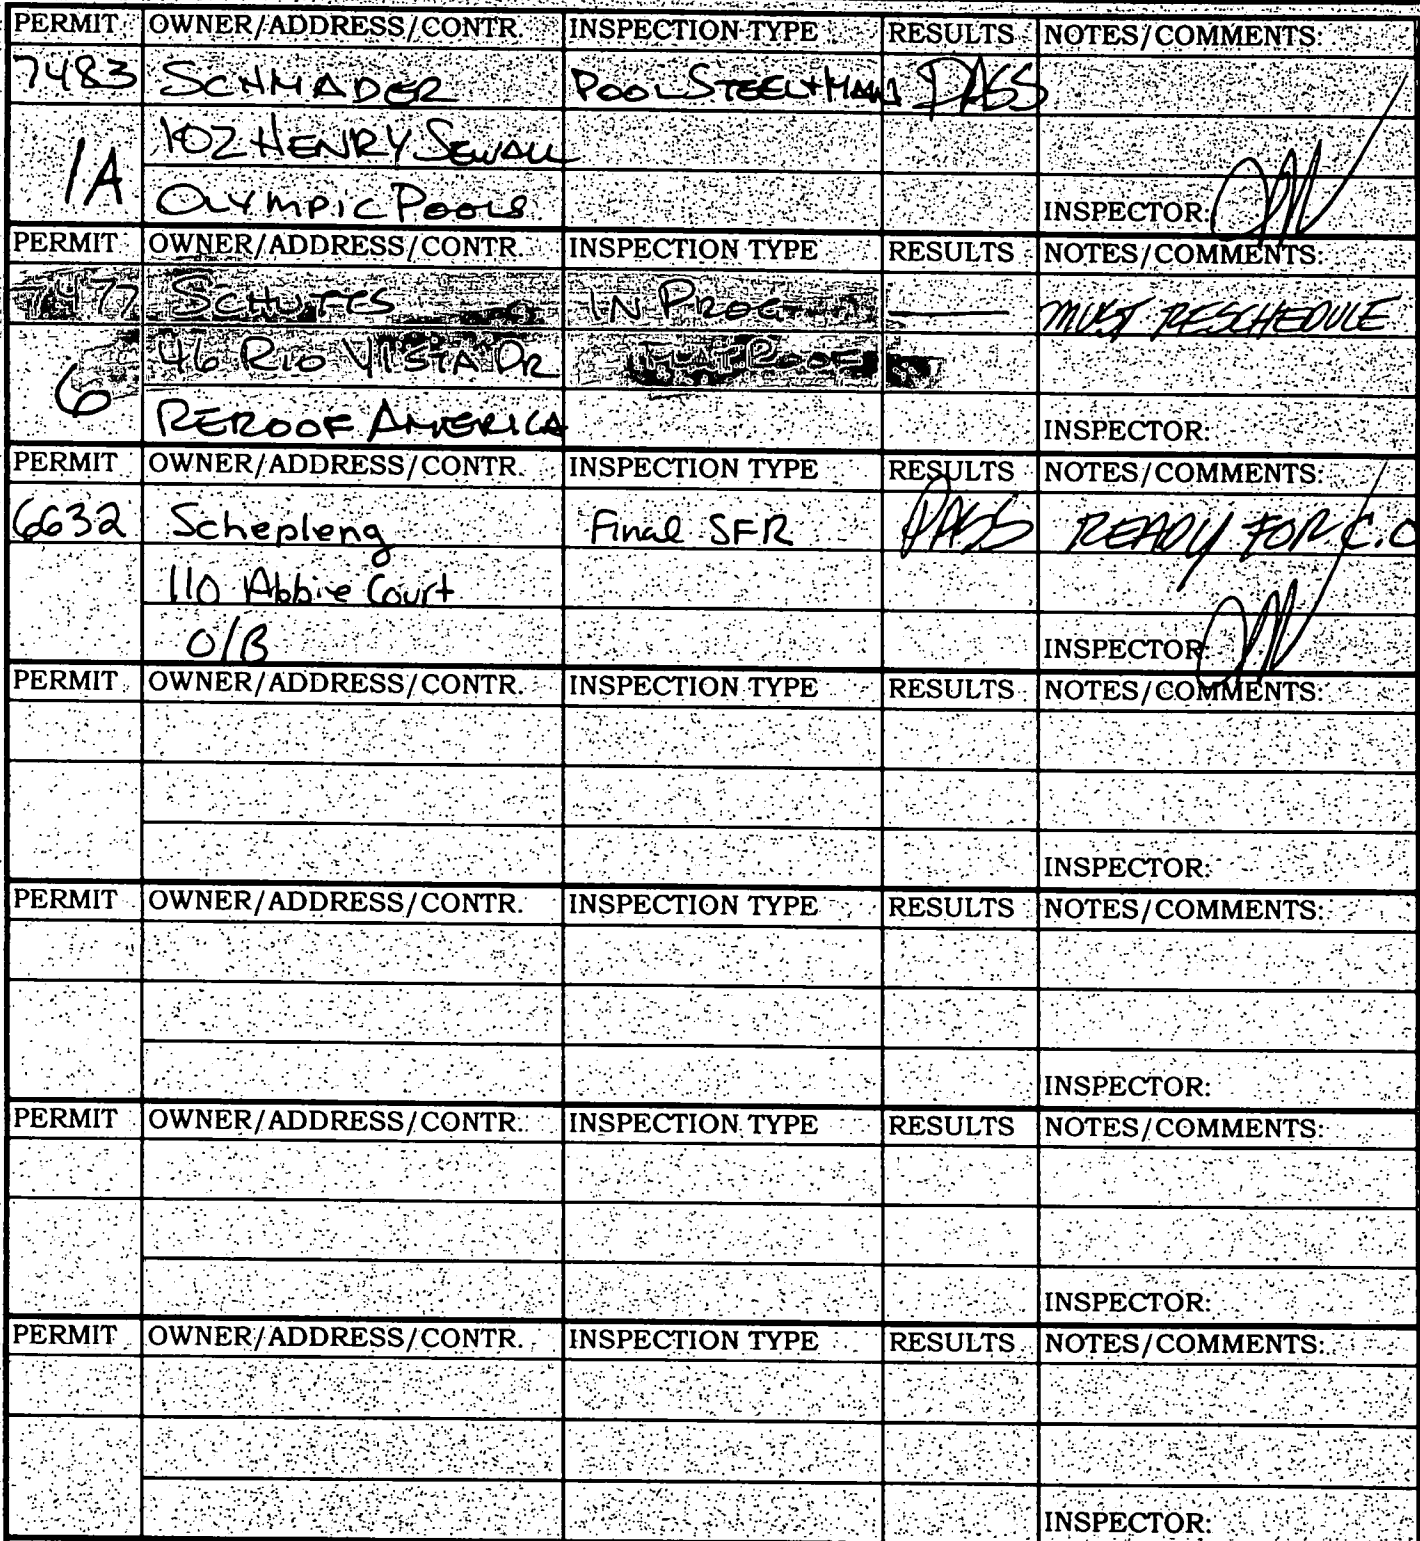 PERMIT OWNER/ADDRESS/CONTR. INSPECTION TYPE RESULTS NOTES/COMMENTS:
7483 SCHMADER POOL STEEL+MAIN PASS
1A 102 HENRY SEWALL
OLYMPIC POOLS INSPECTOR:
PERMIT OWNER/ADDRESS/CONTR. INSPECTION TYPE RESULTS NOTES/COMMENTS:
7477 IN PROG — MUST RESCHEDULE
6 46 RIO VISTA DR ROOF
REROOF AMERICA INSPECTOR:
PERMIT OWNER/ADDRESS/CONTR. INSPECTION TYPE RESULTS NOTES/COMMENTS:
6632 Schepleng Final SFR PASS READY FOR C.O
110 Abbie Court
O/B INSPECTOR:
PERMIT OWNER/ADDRESS/CONTR. INSPECTION TYPE RESULTS NOTES/COMMENTS:
INSPECTOR:
PERMIT OWNER/ADDRESS/CONTR. INSPECTION TYPE RESULTS NOTES/COMMENTS:
INSPECTOR:
PERMIT OWNER/ADDRESS/CONTR. INSPECTION TYPE RESULTS NOTES/COMMENTS:
INSPECTOR:
PERMIT OWNER/ADDRESS/CONTR. INSPECTION TYPE RESULTS NOTES/COMMENTS:
INSPECTOR: